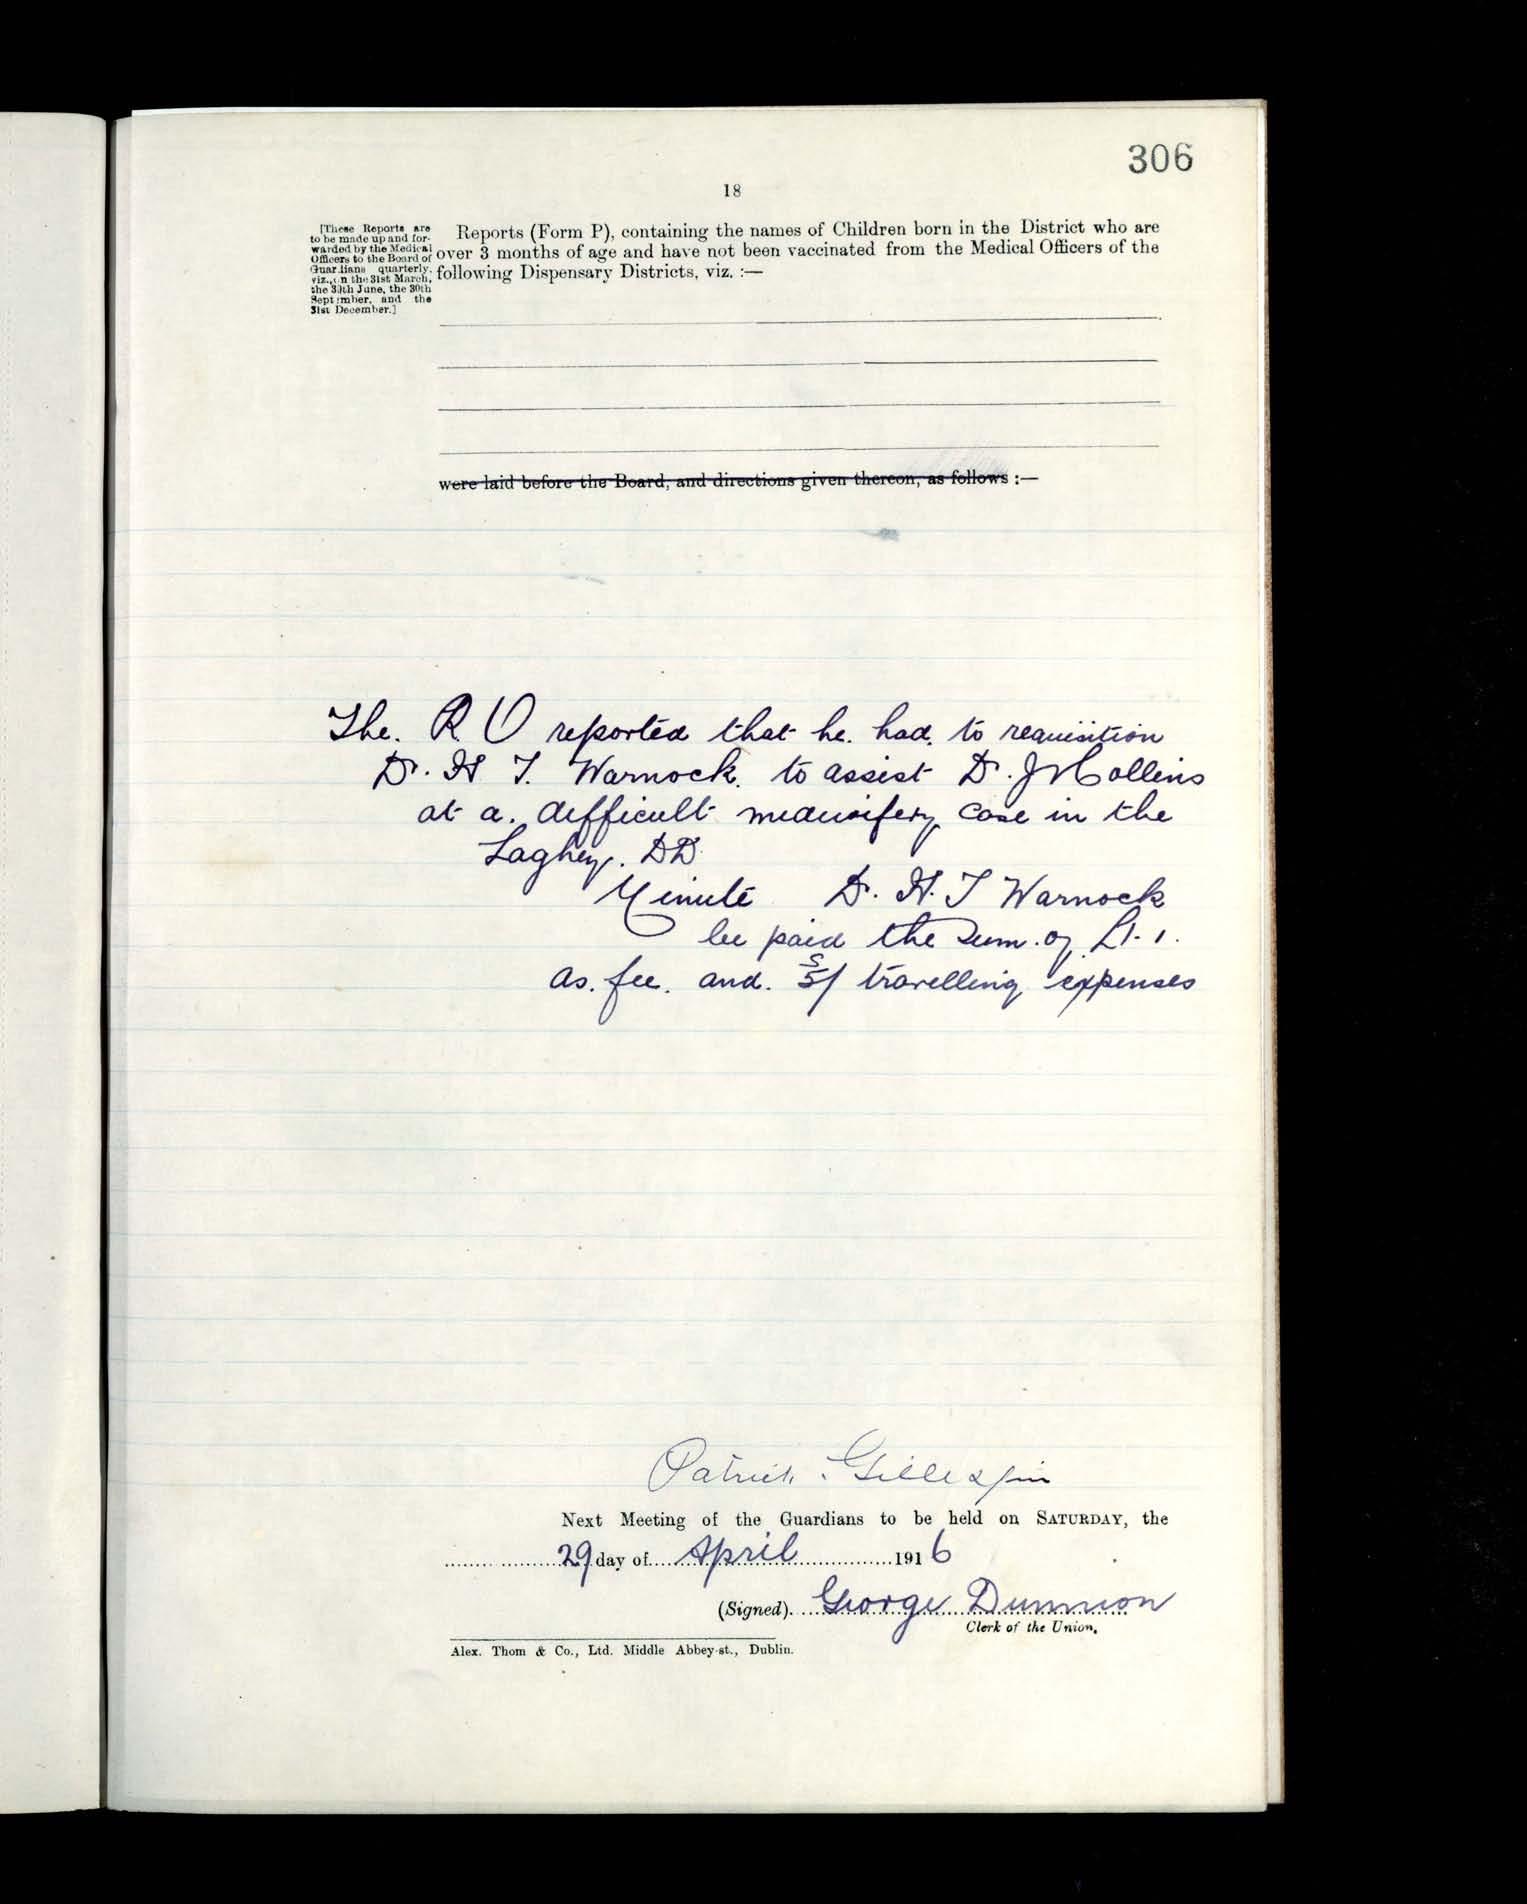 306
18
[These Reports are
to be made up and for-
warded by the Medical
Officers to the Board of
Guardians quarterly,
viz., on the 31st March,
the 30th June, the 30th
September, and the
31st December.]
Reports (Form P), containing the names of Children born in the District who are
over 3 months of age and have not been vaccinated from the Medical Officers of the
following Dispensary Districts, viz. :—
were laid before the Board, and directions given thereon, as follows :—
The. R. O reported that he. had. to requisition
Dr. H T. Warnock. to assist Dr. J Collins
at a. difficult midwifery case in the
Laghey. DD
Minute Dr. H. T Warnock
be paid the sum. of £1. 1.
as. fee. and. 5/ travelling expenses
Patrick Gillespie
Next Meeting of the Guardians to be held on SATURDAY, the
29 day of April 1916
(Signed) George Dunnion
Clerk of the Union.
Alex. Thom & Co., Ltd. Middle Abbey-st., Dublin.